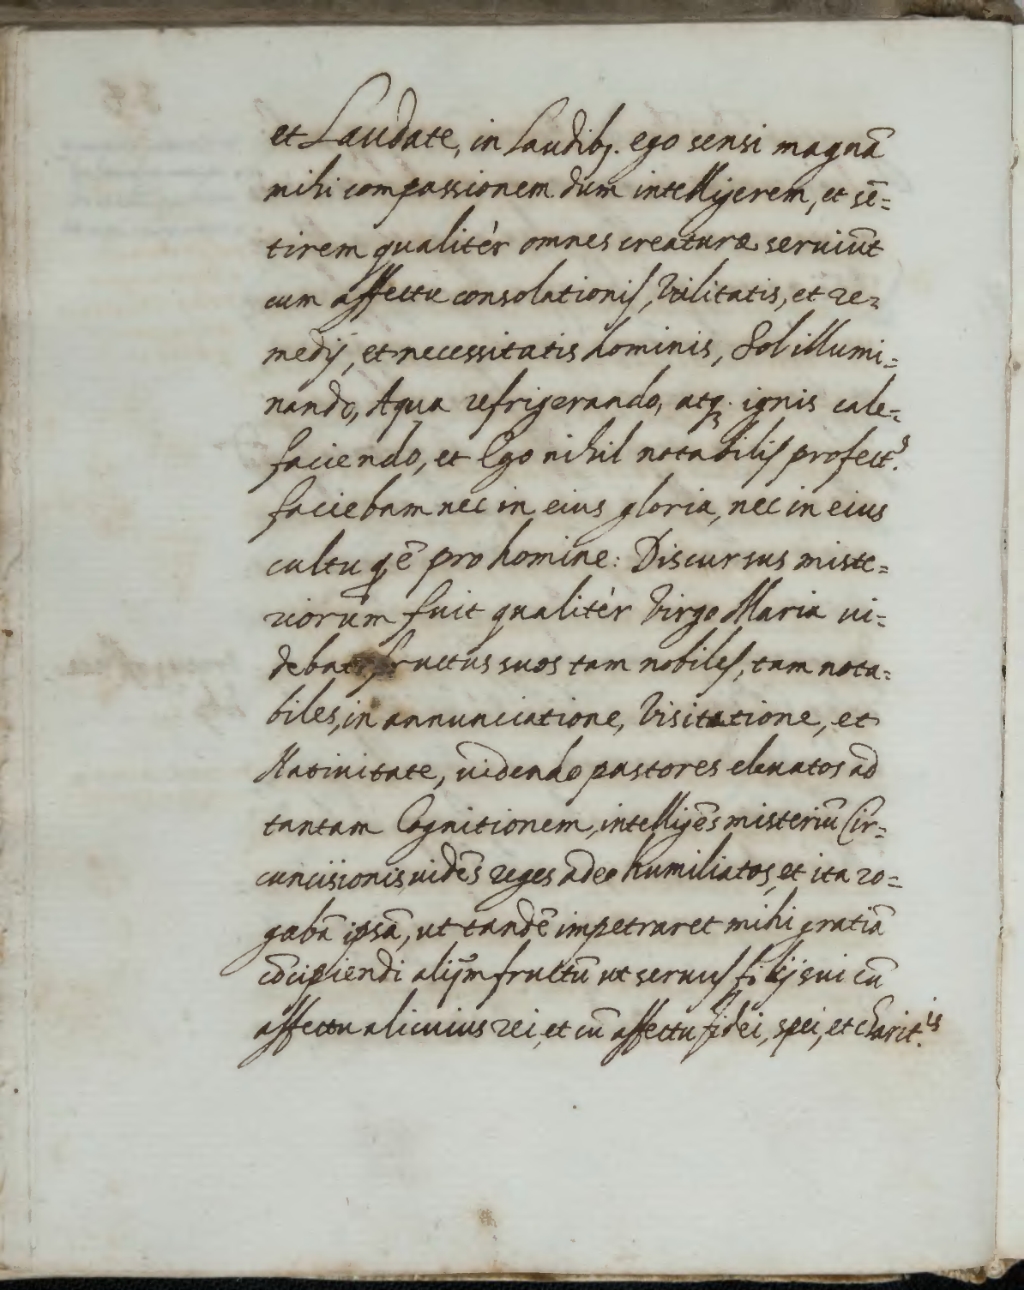 et Laudate, in Laudibꝫ. ego sensi magnā
mihi compassionem dum intelligerem, et sē=
tirem qualitèr omnes creaturæ seruiūt
cum affectu consolationis, Vtilitatis, et re=
medij, et necessitatis hominis, Sol illumi=
nando, Aqua refrigerando, atqꝫ. ignis cale=
faciendo, et Ego nihil notabilis profect.9
faciebam nec in eius gloria, nec in eius
cultu qē pro homine: Discursus miste=
riorum fuit qualitèr Virgo Maria ui=
debat fructus suos tam nobiles, tam nota=
biles, in annunciatione, Visitatione, et
Natiuitate, uidendo pastores eleuatos ad
tantam Cognitionem, intelligēs misteriū Cir=
cuncisionis, uidēs reges adeo humiliatos, et ita ro=
gabā ipsā, ut tandē impetraret mihi gratiā
cōcipiendi aliqm fructū ut seruus filij sui cū
affectu alicuius rei, et cū affectu fidei, spei, et charit.is